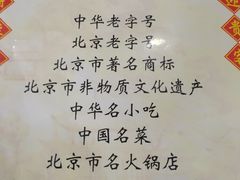 中华老字号
北京老字号
北京市著名商标
北京市非物质文化遗产
中华名小吃
中国名菜
北京市名火锅店